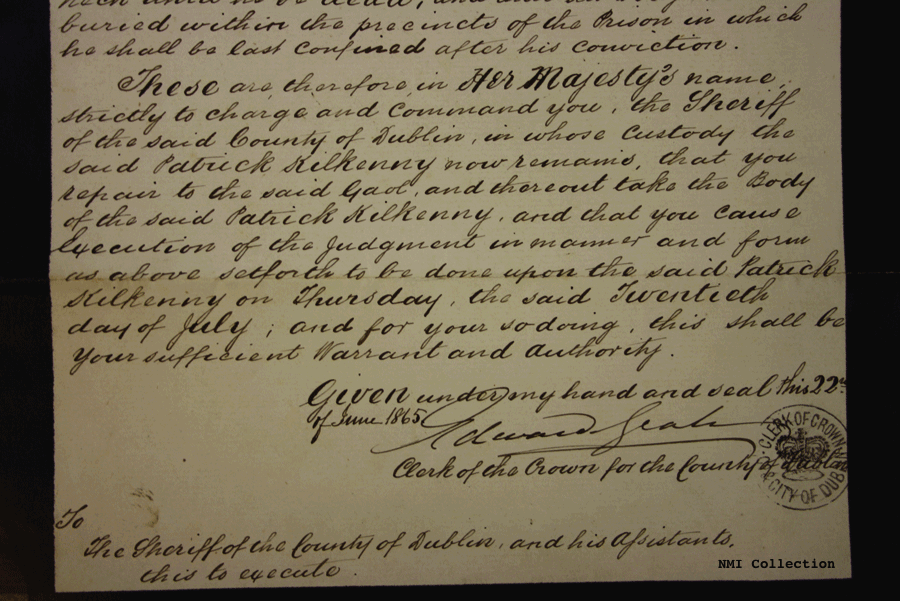 neck until he be dead, and that
buried within the precincts of the Prison in which
he shall be last confined after his conviction.
These are, therefore, in Her Majesty's name,
strictly to charge and command you, the Sheriff
of the said County of Dublin, in whose Custody the
said Patrick Kilkenny now remains, that you
repair to the said Gaol, and thereout take the Body
of the said Patrick Kilkenny, and that you cause
Execution of the Judgment in manner and form
as above setforth to be done upon the said Patrick
Kilkenny on Thursday, the said Twentieth
day of July; and for your so doing, this shall be
your sufficient Warrant and Authority.
Given under my hand and seal this 22nd
of June 1865
Edward
Clerk of the Crown for the County of Dublin
CLERK OF CROWN
CITY OF DUB
To
The Sheriff of the County of Dublin, and his Assistants,
this to execute.
NMI Collection